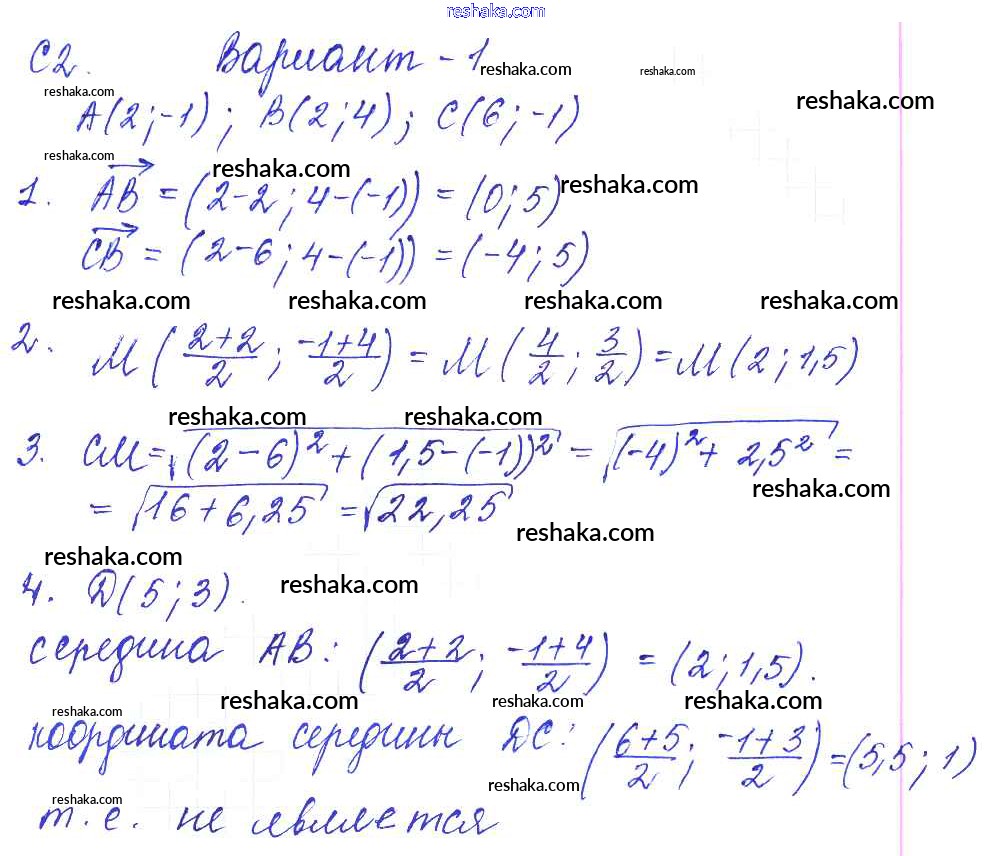 reshaka.com
С2. Вариант - 1
reshaka.com reshaka.com
reshaka.com reshaka.com
A(2;-1); B(2;4); C(6;-1)
reshaka.com reshaka.com
1. AB = (2-2; 4-(-1)) = (0; 5) reshaka.com
CB = (2-6; 4-(-1)) = (-4; 5)
reshaka.com reshaka.com reshaka.com reshaka.com
2. M((2+2)/2; (-1+4)/2) = M(4/2; 3/2) = M(2; 1,5)
reshaka.com reshaka.com
3. CM = √((2-6)² + (1,5-(-1))²) = √((-4)² + 2,5²) =
reshaka.com
= √(16+6,25) = √22,25
reshaka.com
reshaka.com reshaka.com
4. D(5; 3).
середина AB: ((2+2)/2; (-1+4)/2) = (2; 1,5).
reshaka.com reshaka.com reshaka.com reshaka.com
координата середины DC: ((6+5)/2; (-1+3)/2) = (5,5; 1)
reshaka.com
reshaka.com
т.е. не является